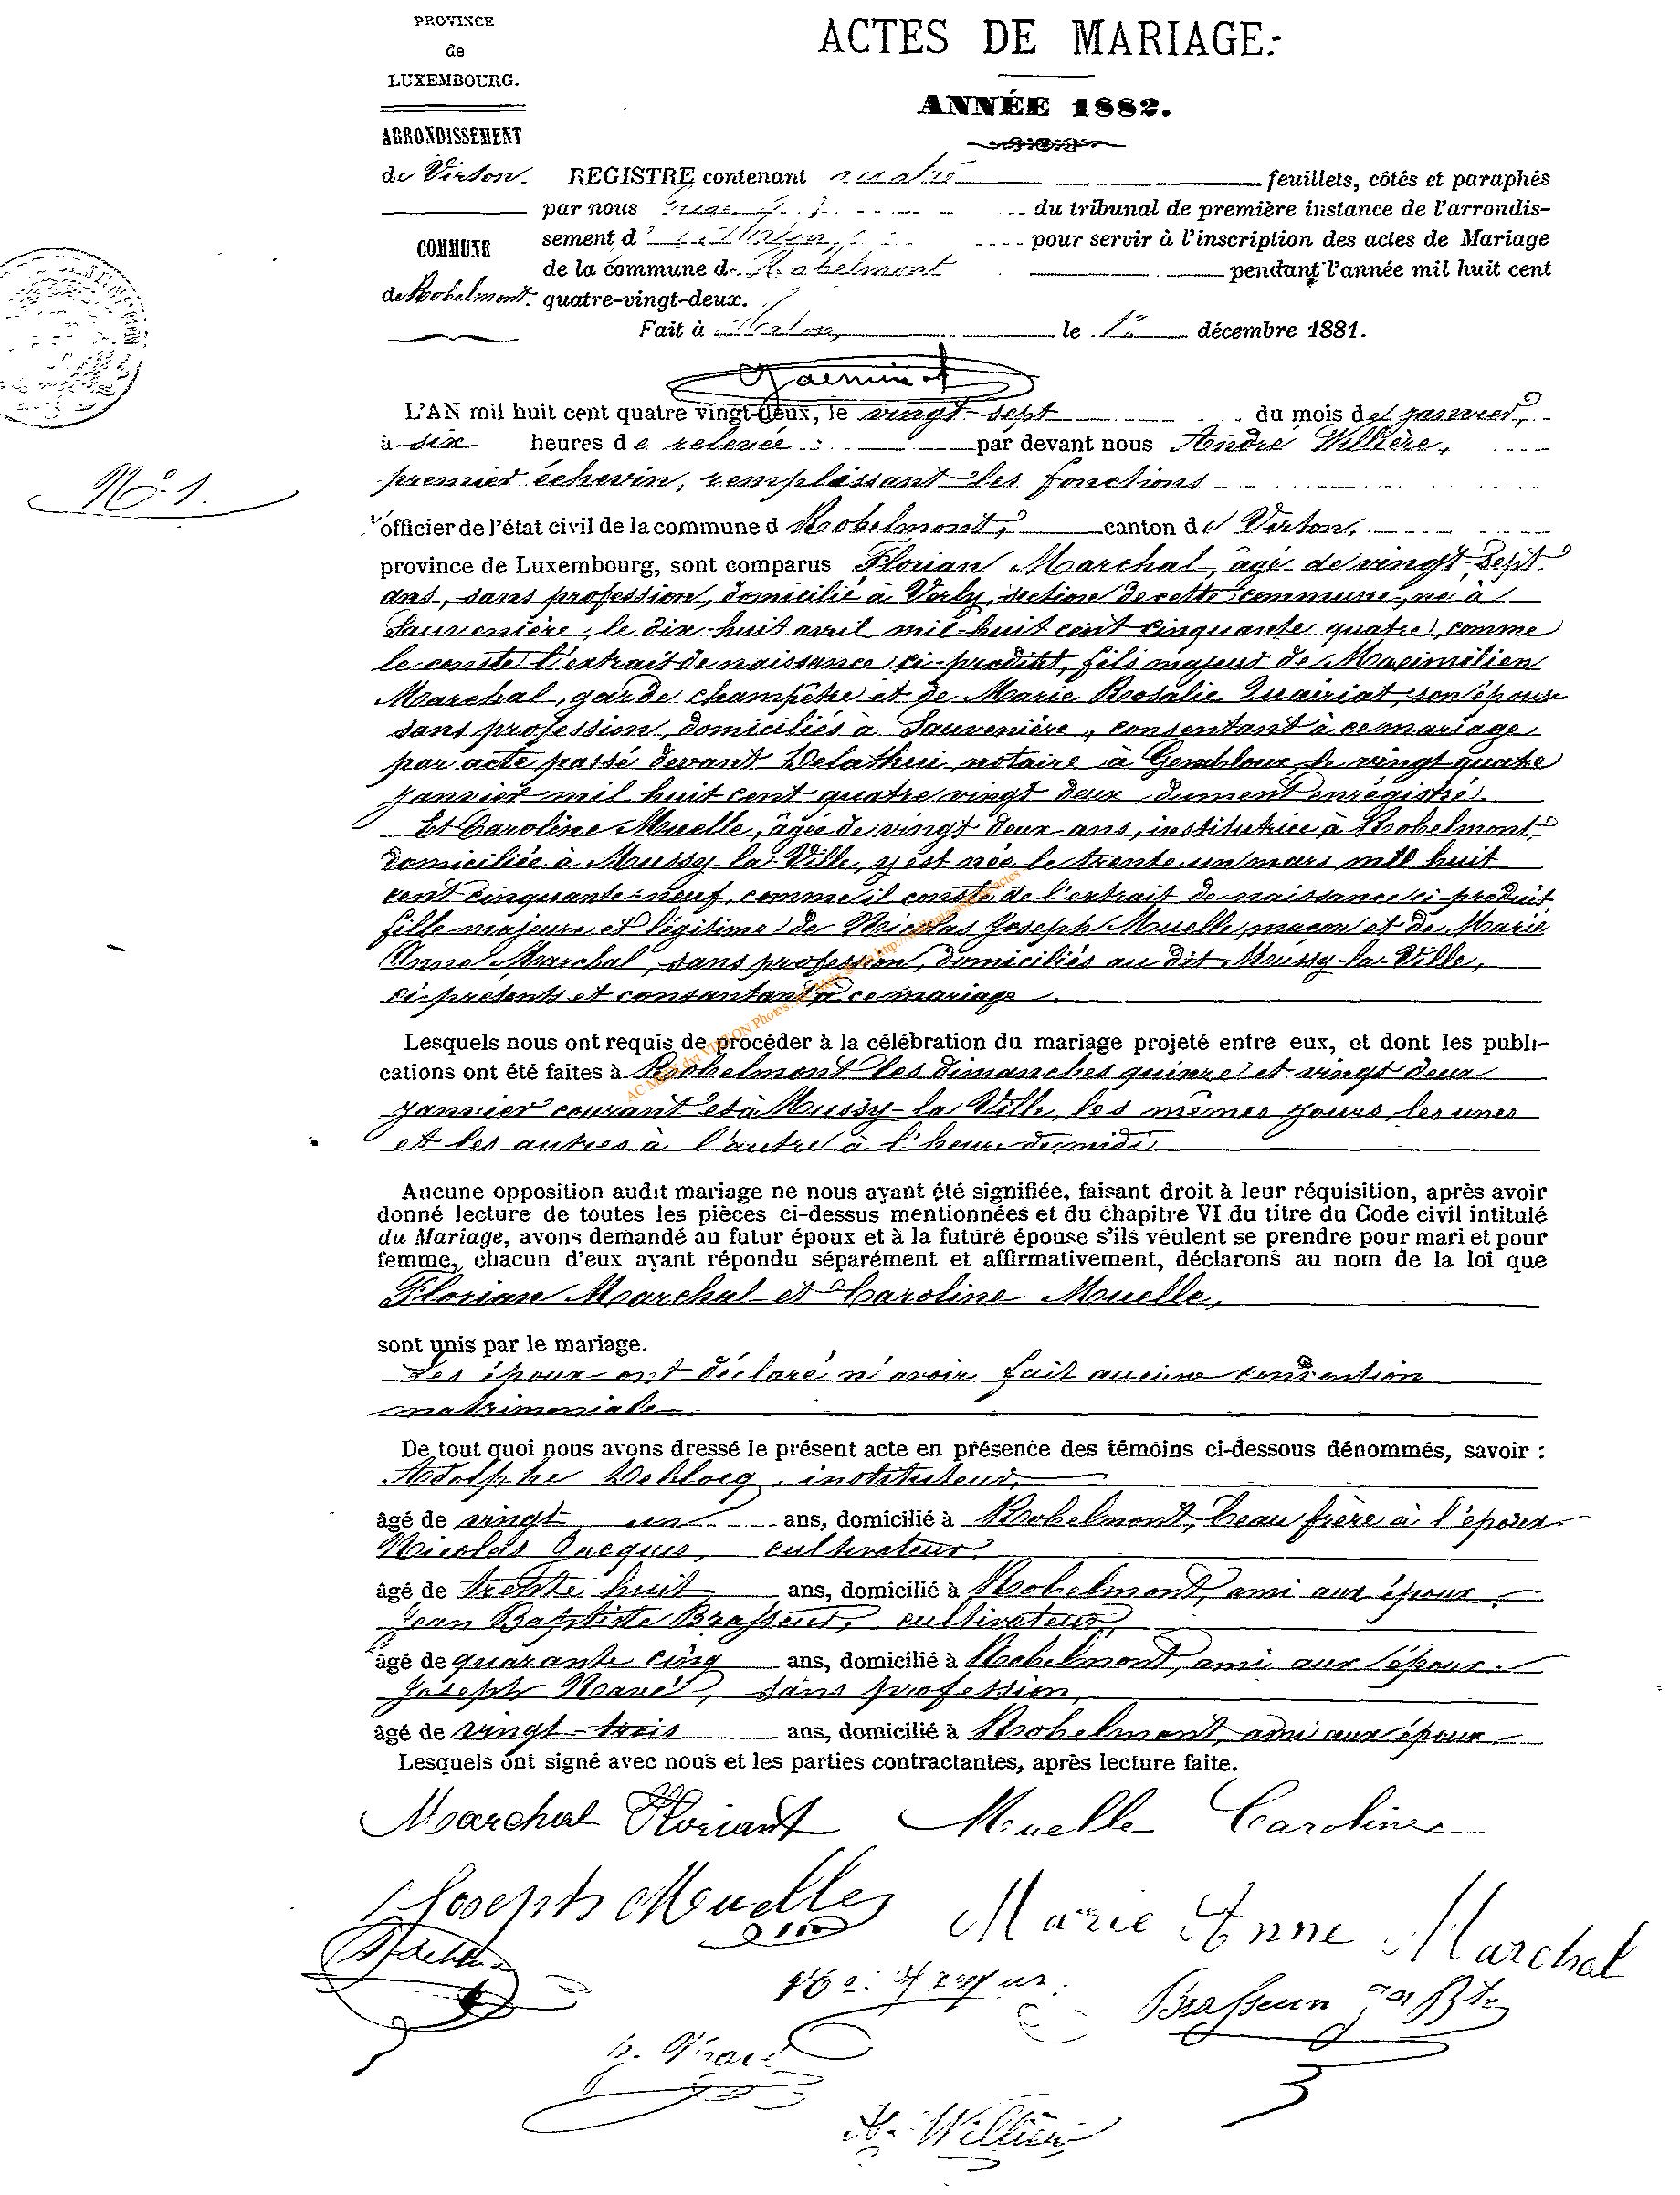 PROVINCE
de
LUXEMBOURG.
ARRONDISSEMENT
de Virton.
COMMUNE
de Robelmont.
ACTES DE MARIAGE.
ANNÉE 1882.
REGISTRE contenant quatre feuillets, côtés et paraphés
par nous du tribunal de première instance de l'arrondis-
sement d Virton, pour servir à l'inscription des actes de Mariage
de la commune de Robelmont pendant l'année mil huit cent
quatre-vingt-deux.
Fait à Virton, le 1er décembre 1881.
N° 1.
L'AN mil huit cent quatre vingt-deux, le vingt-sept du mois de janvier,
à six heures de relevée par devant nous André Willière,
premier échevin, remplissant les fonctions
d'officier de l'état civil de la commune d Robelmont, canton de Virton,
province de Luxembourg, sont comparus Florian Marchal, âgé de vingt-sept
ans, sans profession, domicilié à Verly, section de cette commune, né à
Sauvenière, le dix-huit avril mil huit cent cinquante quatre, comme
le conste l'extrait de naissance ci-produit, fils majeur de Maximilien
Marchal, garde champêtre et de Marie Rosalie Quairiat, son épouse
sans profession, domiciliés à Sauvenière, consentant à ce mariage
par acte passé devant Delathui notaire à Gembloux, le vingt quatre
janvier mil huit cent quatre vingt deux, dument enrégistré.
Et Caroline Muelle, âgée de vingt deux ans, institutrice à Robelmont
domiciliée à Mussy-la-Ville, y est née le trente un mars mil huit
cent cinquante-neuf, comme il conste de l'extrait de naissance ci-produit,
fille majeure et légitime de Nicolas Joseph Muelle, maçon et de Marie
Anne Marchal, sans profession, domiciliés au dit Mussy-la-Ville,
ci-présents et consentant à ce mariage.
Lesquels nous ont requis de procéder à la célébration du mariage projeté entre eux, et dont les publi-
cations ont été faites à Robelmont les dimanches quinze et vingt deux
janvier courant et à Mussy-la-Ville, les mêmes jours, les unes
et les autres à l'autre à l'heure de midi.
Aucune opposition audit mariage ne nous ayant été signifiée, faisant droit à leur réquisition, après avoir
donné lecture de toutes les pièces ci-dessus mentionnées et du chapitre VI du titre du Code civil intitulé
du Mariage, avons demandé au futur époux et à la future épouse s'ils veulent se prendre pour mari et pour
femme, chacun d'eux ayant répondu séparément et affirmativement, déclarons au nom de la loi que
Florian Marchal et Caroline Muelle,
sont unis par le mariage.
Les époux ont déclaré n'avoir fait aucune convention
matrimoniale.
De tout quoi nous avons dressé le présent acte en présence des témoins ci-dessous dénommés, savoir :
Adolphe instituteur,
âgé de vingt un ans, domicilié à Robelmont, beau frère à l'époux
Nicolas Jacques, cultivateur,
âgé de trente huit ans, domicilié à Robelmont, ami aux époux,
Jean Baptiste Brasseur, cultivateur,
âgé de quarante cinq ans, domicilié à Robelmont, ami aux époux.
Joseph sans profession,
âgé de vingt-trois ans, domicilié à Robelmont, ami aux époux.
Lesquels ont signé avec nous et les parties contractantes, après lecture faite.
Marchal Floriant Muelle Caroline
Joseph Muelle Marie Anne Marchal
Brasseur Jn Bte
A. Willière